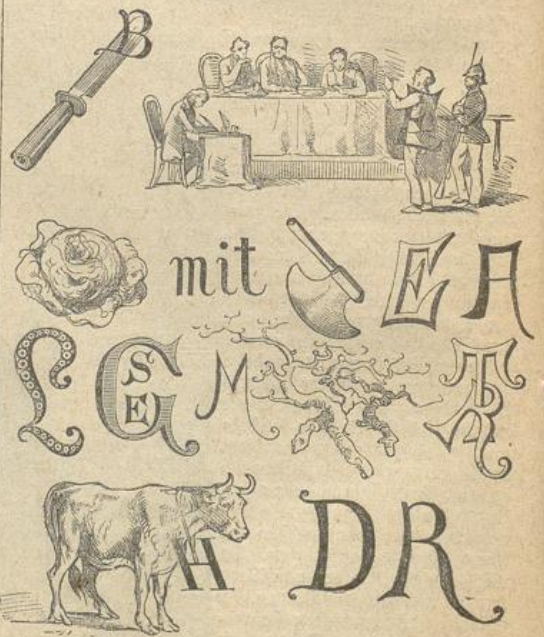 B
mit E A
L G SE M TR
H DR